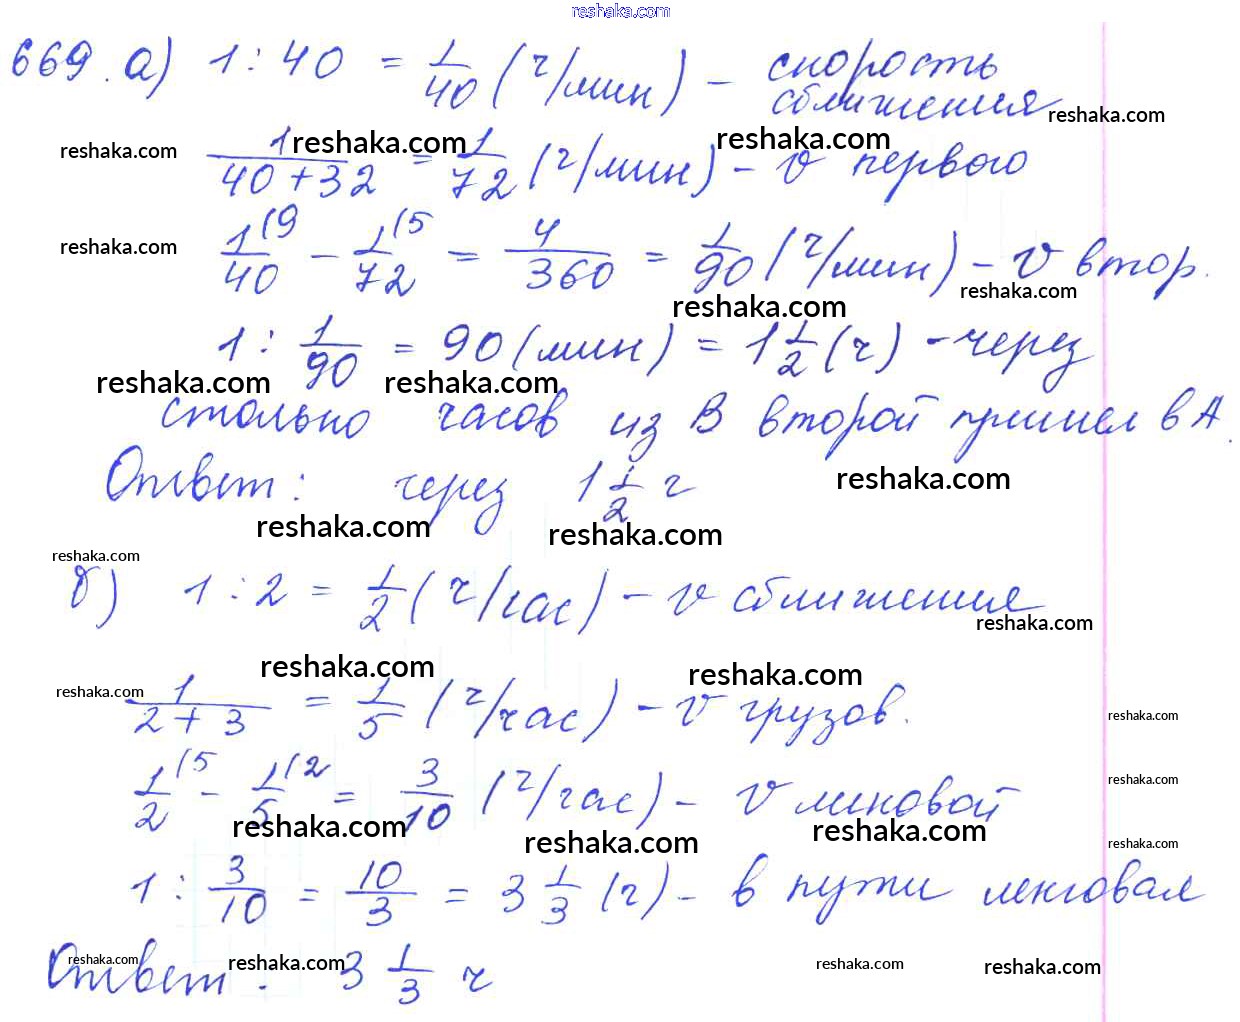 reshaka.com
669. а) 1 : 40 = 1/40 (ч/мин) – скорость
сближения reshaka.com
reshaka.com reshaka.com reshaka.com
1/(40+32) = 1/72 (ч/мин) – v первого
reshaka.com 1/40 (9 – 1/72 (5 = 4/360 = 1/90 (ч/мин) – v втор.
reshaka.com reshaka.com
1 : 1/90 = 90 (мин) = 1 1/2 (ч) – через
reshaka.com reshaka.com
столько часов из В второй пришел в А.
Ответ: через 1 1/2 ч reshaka.com
reshaka.com reshaka.com
reshaka.com
б) 1 : 2 = 1/2 (ч/час) – v сближения
reshaka.com
reshaka.com reshaka.com
reshaka.com
1/(2+3) = 1/5 (ч/час) – v грузов. reshaka.com
1/2 (5 – 1/5 (2 = 3/10 (ч/час) – v легковой reshaka.com
reshaka.com reshaka.com reshaka.com reshaka.com
1 : 3/10 = 10/3 = 3 1/3 (ч) – в пути легковая
reshaka.com reshaka.com reshaka.com reshaka.com
Ответ: 3 1/3 ч